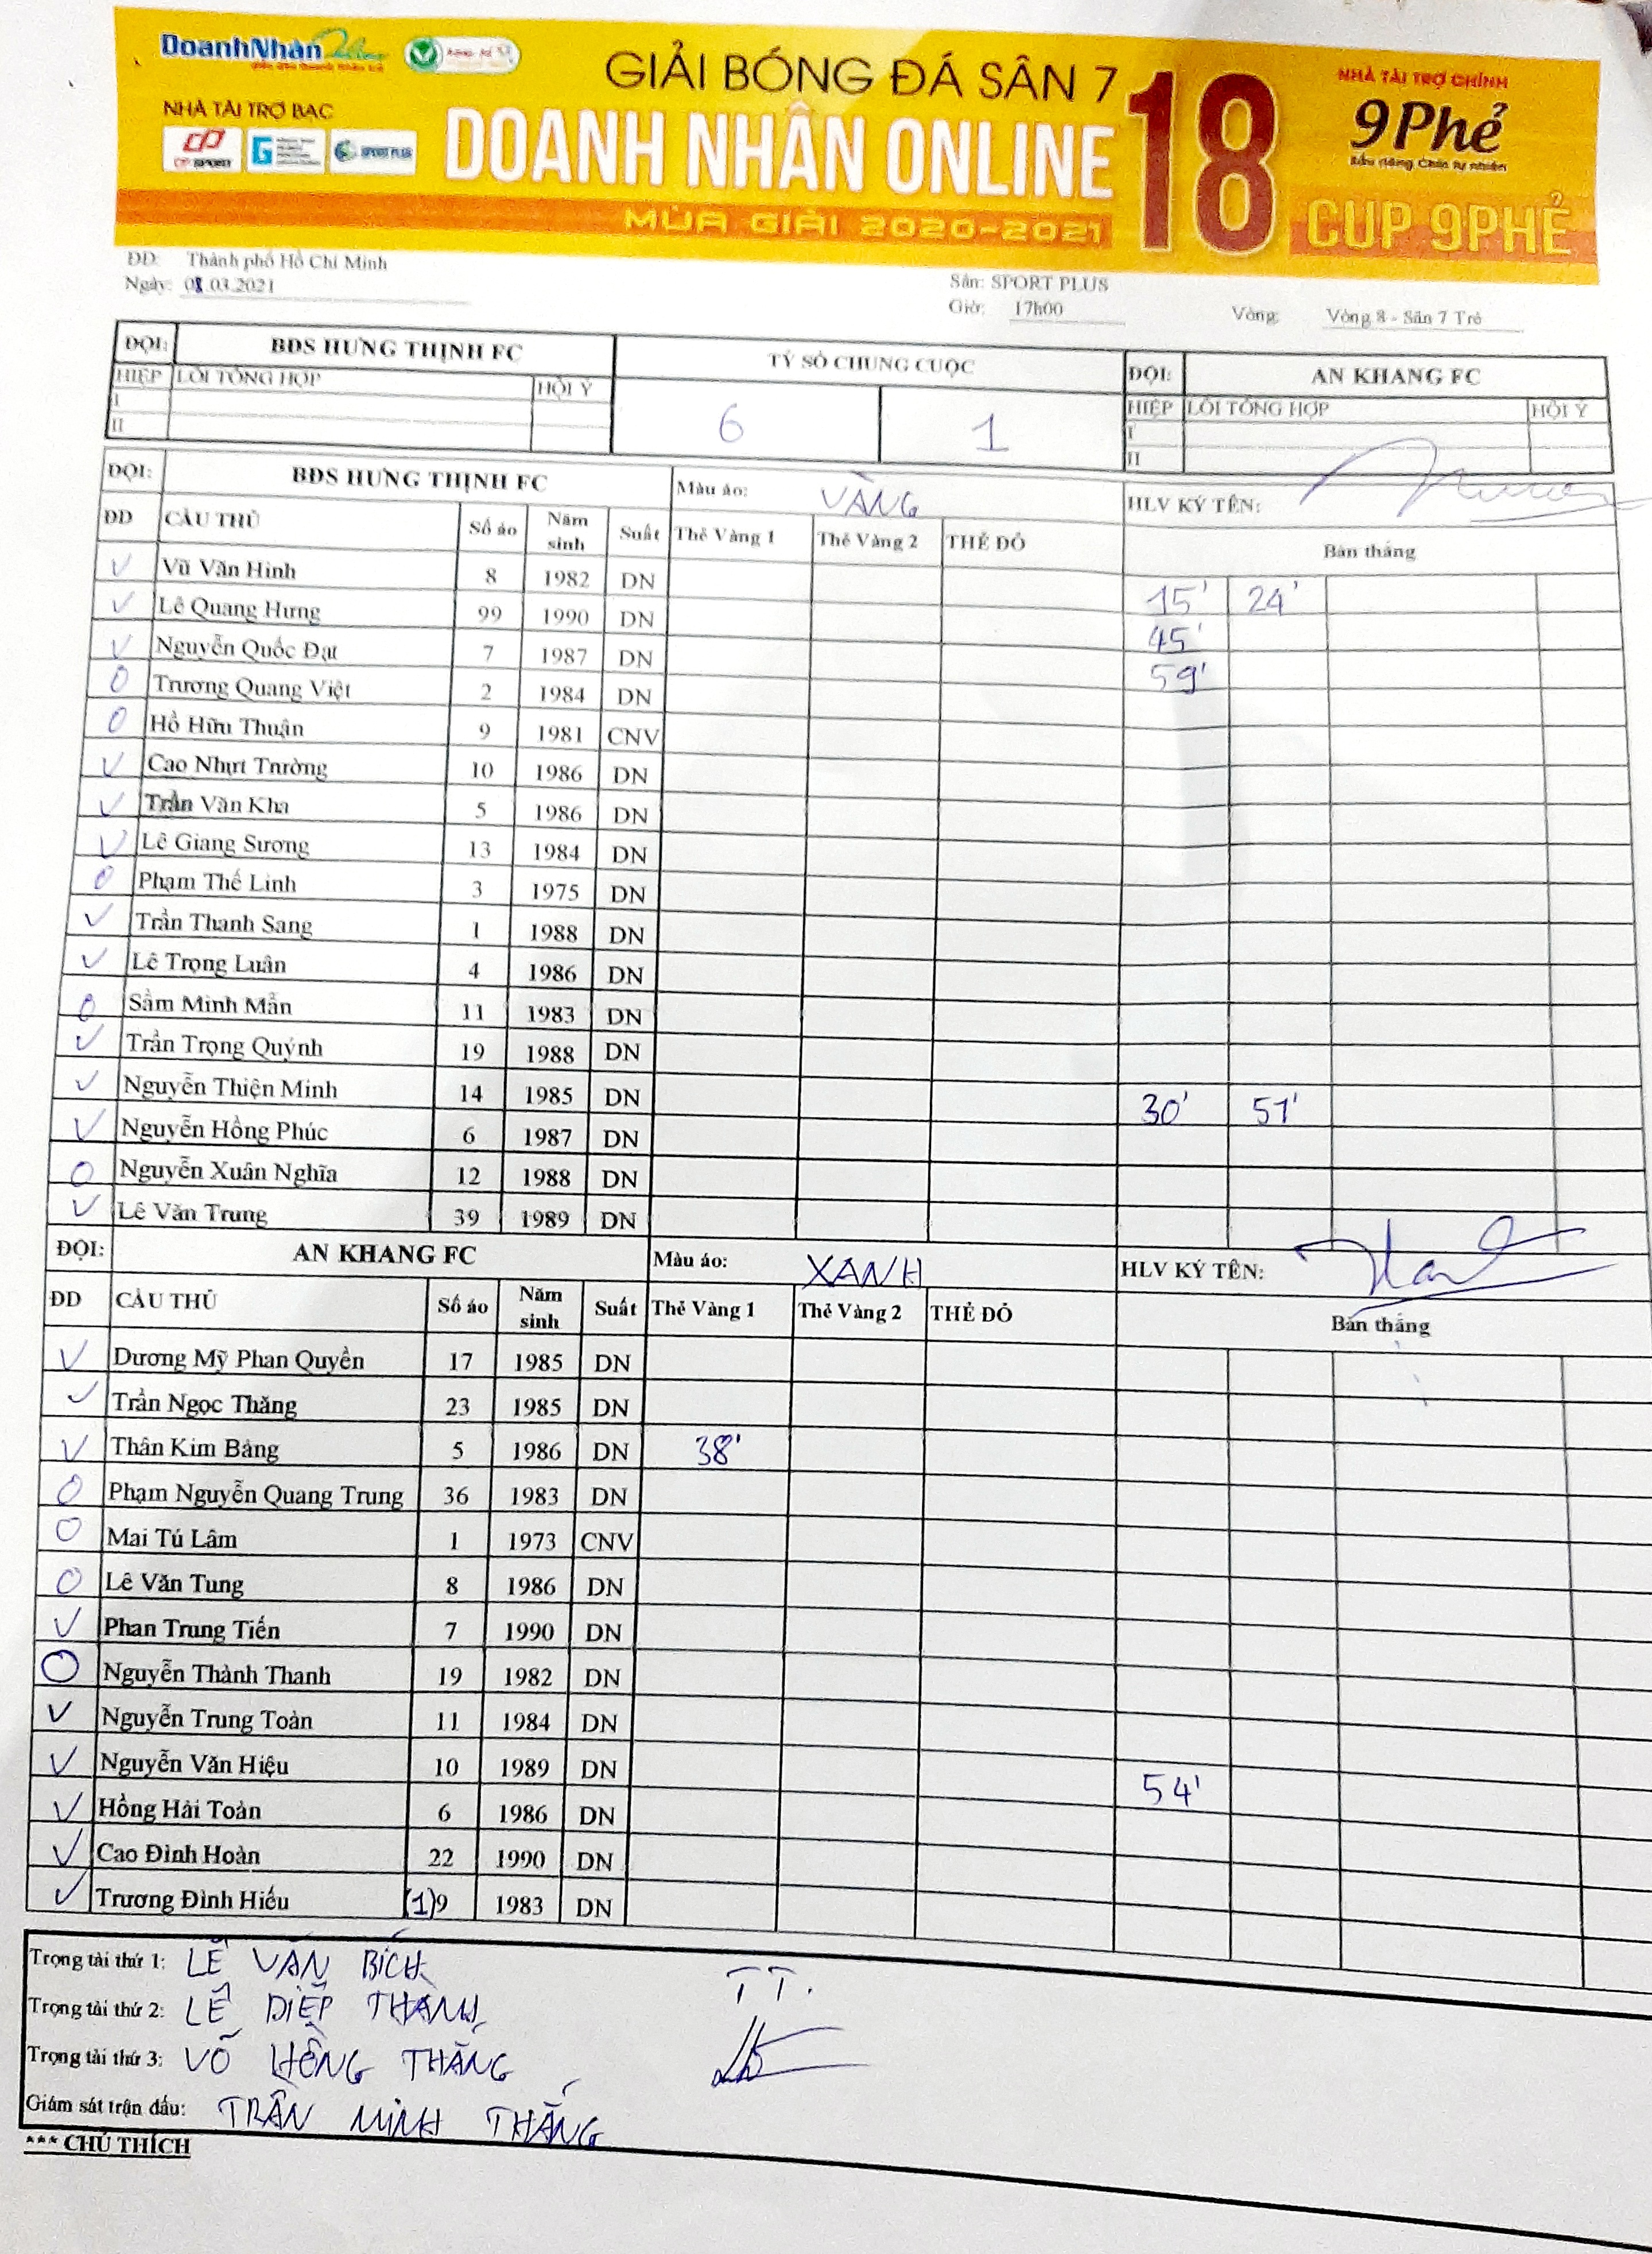 DoanhNhân
GIẢI BÓNG ĐÁ SÂN 7
18
NHÀ TÀI TRỢ CHÍNH
NHÀ TÀI TRỢ BẠC
DOANH NHÂN ONLINE
9Phẻ
CP SPORT
SPORT PLUS
MÙA GIẢI 2020-2021
CUP 9PHẺ
ĐD: Thành phố Hồ Chí Minh
Ngày: 08.03.2021
Sân: SPORT PLUS
Giờ: 17h00
Vòng: Vòng 8 - Sân 7 Trẻ
ĐỘI: BĐS HƯNG THỊNH FC TỶ SỐ CHUNG CUỘC ĐỘI: AN KHANG FC
HIỆP LỖI TỔNG HỢP HỘI Ý 6 1 HIỆP LỖI TỔNG HỢP HỘI Ý
I I
II II
ĐỘI: BĐS HƯNG THỊNH FC Màu áo: VÀNG HLV KÝ TÊN:
ĐD CẦU THỦ Số áo Năm sinh Suất Thẻ Vàng 1 Thẻ Vàng 2 THẺ ĐỎ Bàn thắng
V Vũ Văn Hinh 8 1982 DN 15' 24'
V Lê Quang Hưng 99 1990 DN 45'
V Nguyễn Quốc Đạt 7 1987 DN 59'
O Trương Quang Việt 2 1984 DN
O Hồ Hữu Thuận 9 1981 CNV
V Cao Nhựt Trường 10 1986 DN
V Trần Văn Kha 5 1986 DN
V Lê Giang Sương 13 1984 DN
O Phạm Thế Linh 3 1975 DN
V Trần Thanh Sang 1 1988 DN
V Lê Trọng Luân 4 1986 DN
O Sầm Minh Mẫn 11 1983 DN
V Trần Trọng Quýnh 19 1988 DN
V Nguyễn Thiện Minh 14 1985 DN 30' 51'
V Nguyễn Hồng Phúc 6 1987 DN
O Nguyễn Xuân Nghĩa 12 1988 DN
V Lê Văn Trung 39 1989 DN
ĐỘI: AN KHANG FC Màu áo: XANH HLV KÝ TÊN:
ĐD CẦU THỦ Số áo Năm sinh Suất Thẻ Vàng 1 Thẻ Vàng 2 THẺ ĐỎ Bàn thắng
V Dương Mỹ Phan Quyền 17 1985 DN
V Trần Ngọc Thăng 23 1985 DN
V Thân Kim Bảng 5 1986 DN 38'
O Phạm Nguyễn Quang Trung 36 1983 DN
O Mai Tú Lâm 1 1973 CNV
O Lê Văn Tung 8 1986 DN
V Phan Trung Tiến 7 1990 DN
O Nguyễn Thành Thanh 19 1982 DN
V Nguyễn Trung Toàn 11 1984 DN
V Nguyễn Văn Hiệu 10 1989 DN 54'
V Hồng Hải Toàn 6 1986 DN
V Cao Đình Hoàn 22 1990 DN
V Trương Đình Hiếu (1)9 1983 DN
Trọng tài thứ 1: LÊ VĂN BÍCH TT.
Trọng tài thứ 2: LÊ DIỆP THANH
Trọng tài thứ 3: VÕ HỒNG THẮNG
Giám sát trận đấu: TRẦN MINH THẮNG
*** CHÚ THÍCH